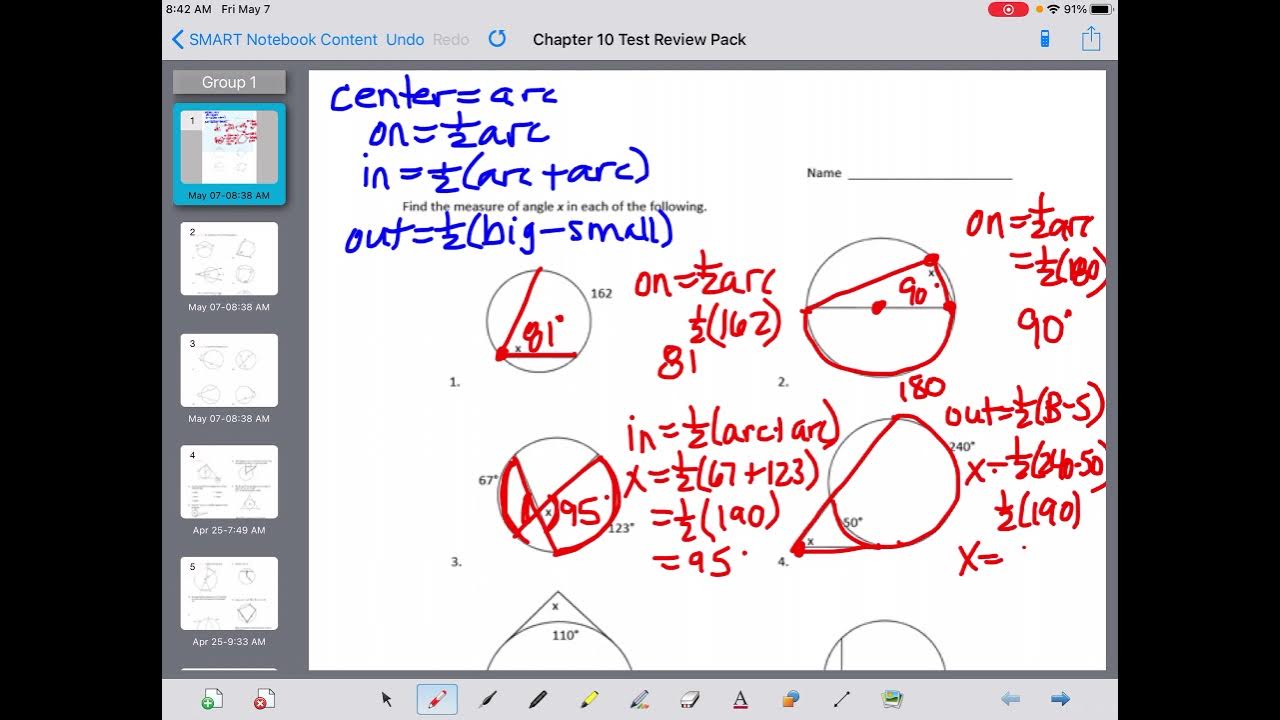 8:42 AM Fri May 7
91%
SMART Notebook Content Undo Redo
Chapter 10 Test Review Pack
Group 1
1
May 07-08:38 AM
2
May 07-08:38 AM
3
May 07-08:38 AM
4
Apr 25-7:49 AM
5
Apr 25-9:33 AM
center = arc
on = ½ arc
in = ½ (arc + arc)
Name
Find the measure of angle x in each of the following.
out = ½ (big - small)
162
x 81°
1.
on = ½ arc
½ (162)
81
x
90°
180
2.
on = ½ arc
= ½ (180)
90°
67°
x 95°
123°
3.
in = ½ (arc + arc)
x = ½ (67 + 123)
= ½ (190)
= 95°
240°
50°
x
4.
out = ½ (B - S)
x = ½ (240-50)
½ (190)
x =
x
110°
A